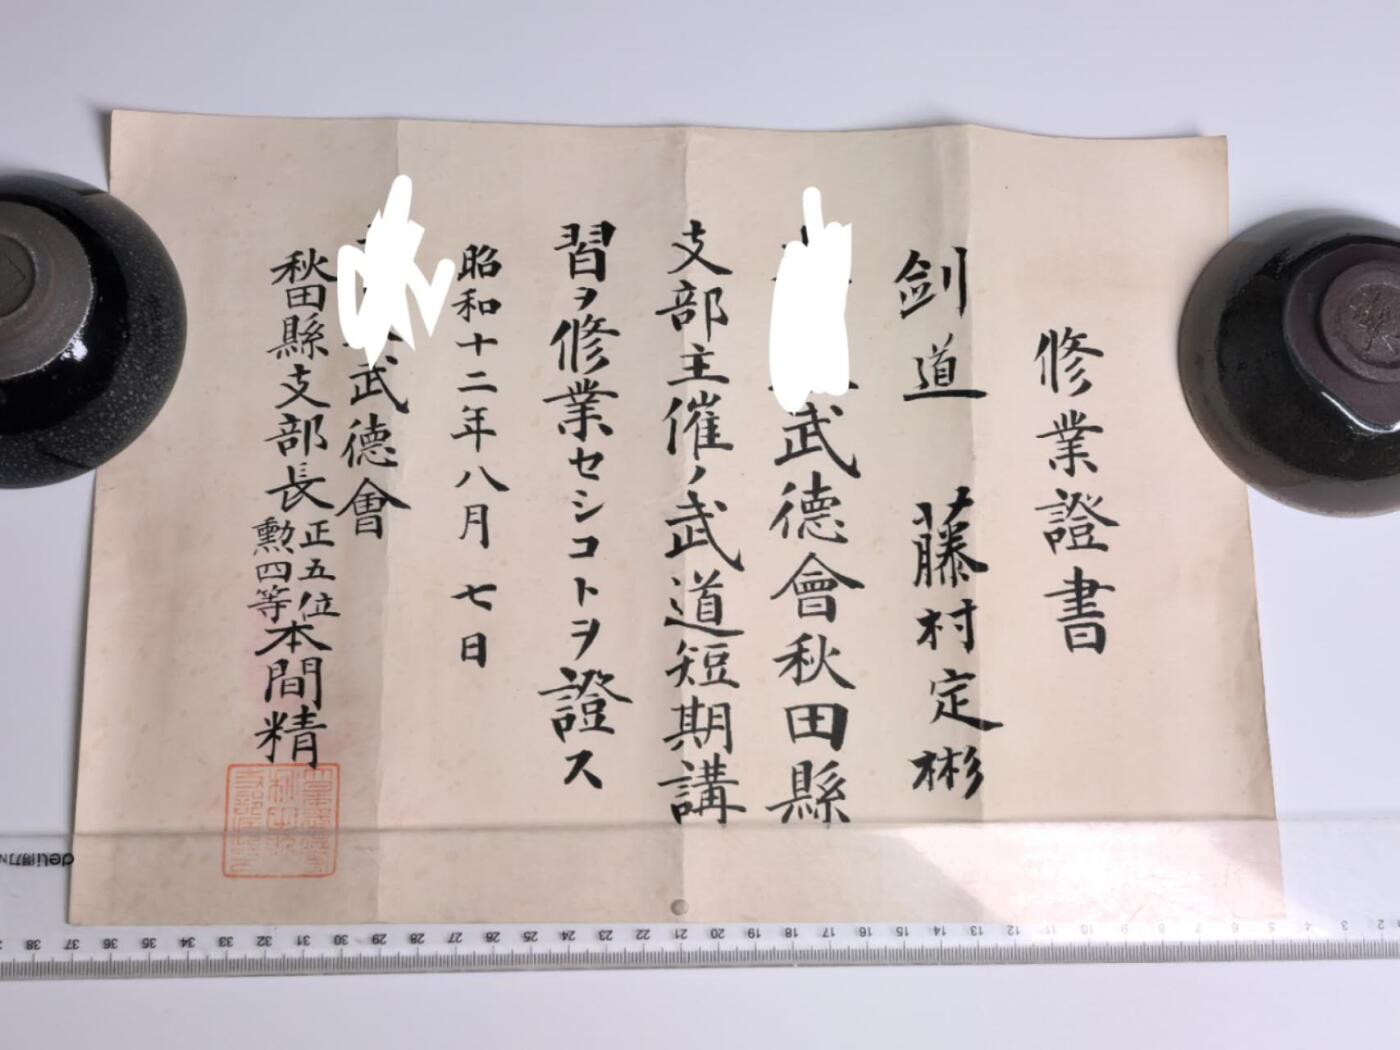 修業證書
劍道 藤村定彬
武德會秋田縣
支部主催ノ武道短期講
習ヲ修業セシコトヲ證ス
昭和十二年八月七日
武德會
秋田縣支部長 正五位 勲四等 本間精
deli得力
38 37 36 35 34 33 32 31 30 29 28 27 26 25 24 23 22 21 20 19 18 17 16 15 14 13 12 11 10 9 8 7 6 5 4 3 2